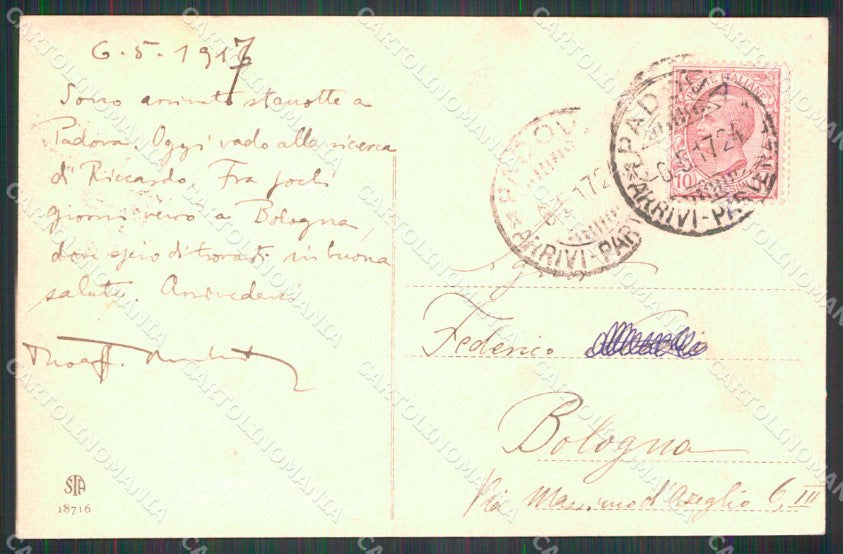 6.5.1917
Sono arrivato stanotte a
Padova. Oggi vado alla ricerca
di Riccardo. Fra pochi
giorni verrò a Bologna,
dove spero di trovarti in buona
salute. Arrivederci
Sig.
Federico
Bologna
Via Massimo d'Azeglio 6, III
PADOVA
6·5·17 24
ARRIVI-PAR
PADOV
17 2
ARRIVI-PAR
POSTE ITALIANE
10
STA
18716
CARTOLINOMANIA